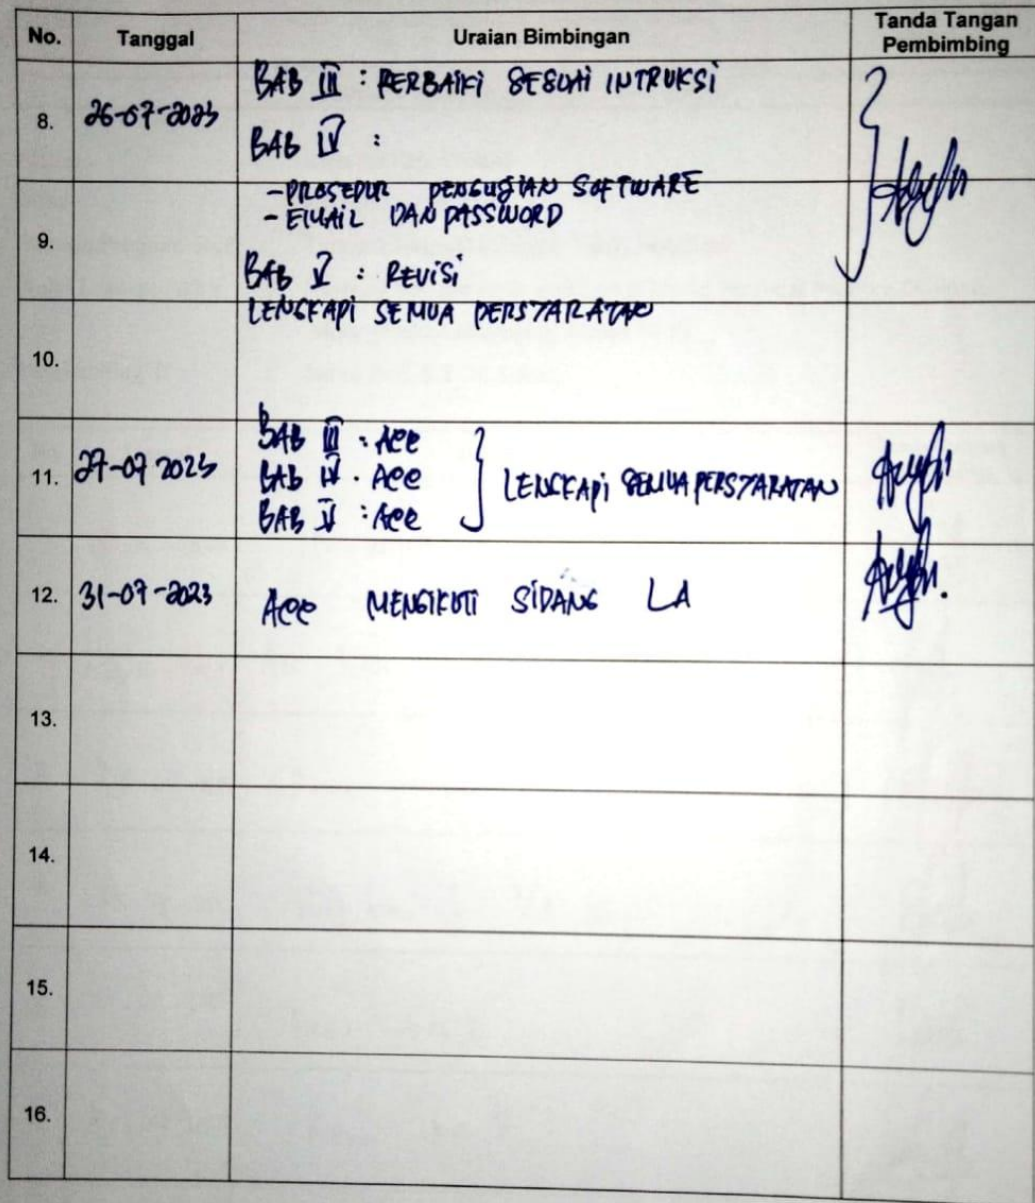 No. Tanggal Uraian Bimbingan Tanda Tangan Pembimbing
8. 26-07-2023 BAB III : PERBAIKI SESUAI INTRUKSI
BAB IV :
- PROSEDUR PENGUJIAN SOFTWARE
- EMAIL DAN PASSWORD
9.
BAB V : REVISI
LENGKAPI SEMUA PERSYARATAN
10.
11. 27-07 2023 BAB III : Acc
BAB IV . Acc
BAB V : Acc
LENGKAPI SEMUA PERSYARATAN
12. 31-07-2023 Acc MENGIKUTI SIDANG LA
13.
14.
15.
16.